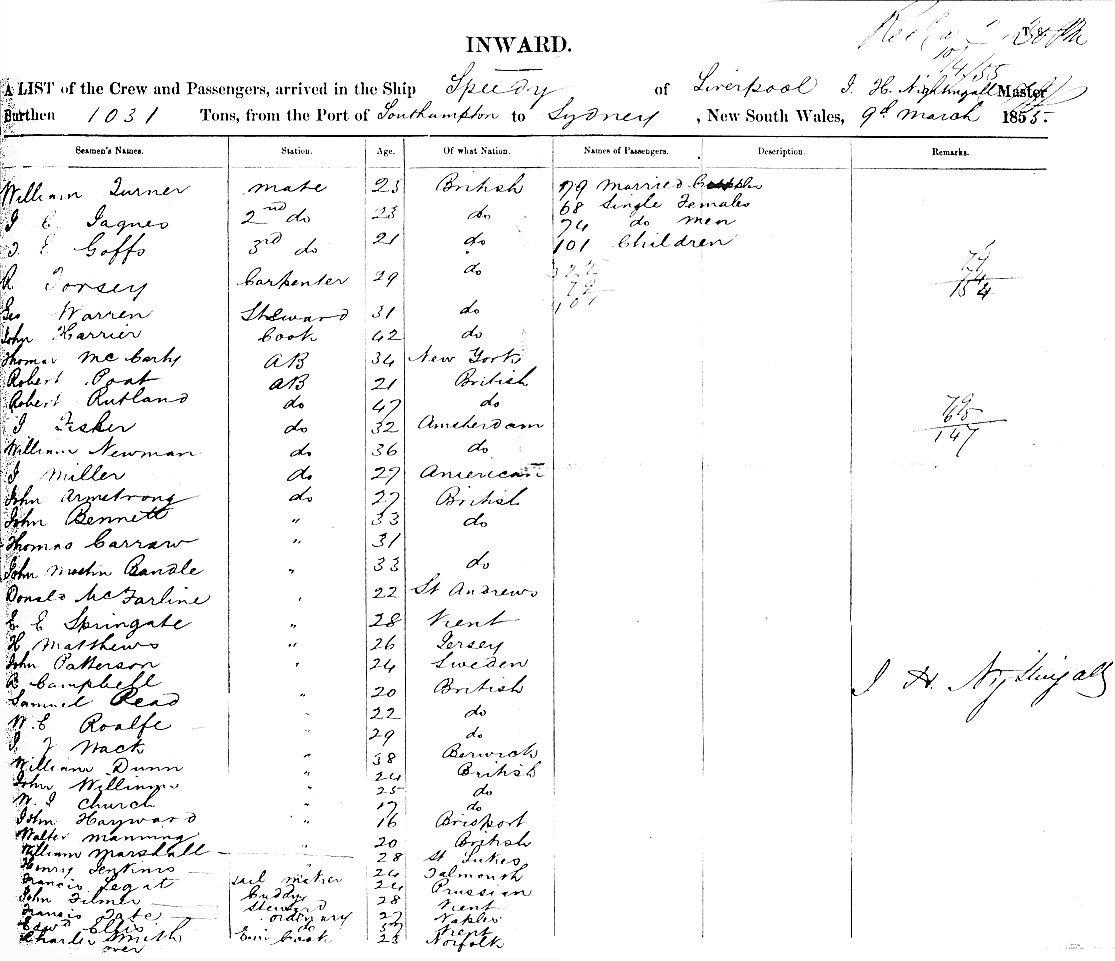 INWARD.
10/4/55
A LIST of the Crew and Passengers, arrived in the Ship Speedy of Liverpool J. H. Nightingall Master
Burthen 1031 Tons, from the Port of Southampton to Sydney, New South Wales, 9d March 1855.
Seamen's Names. Station. Age. Of what Nation. Names of Passengers. Description. Remarks.
William Turner mate 23 British 79 married
J C Jagnes 2nd do 23 do 68 Single Females
J E Goffs 3rd do 21 do 74 do men
101 Children
R Torsey Carpenter 29 do 322
79
101
Geo Warren Steward 31 do
John Harrier Cook 42 do
Thomas McCarty AB 34 New York
Robert Pont AB 21 British
Robert Rutland do 47 do
J Fisher do 32 Amsterdam
William Newman do 36 do
J Miller do 27 American
John Armstrong do 27 British
John Bennett " 33 do
Thomas Carraw " 31
John Martin Randle " 33 do
Donald McFarline " 22 St Andrews
E E Springate " 28 Kent
H Matthews " 26 Jersey
John Patterson " 24 Sweden
R Campbell
Samuel Read " 20 British
W. E Roalfe " 22 do
J J Mack " 29 do
William Dunn " 38 Berwick
John Williams " 24 British
W. J Church " 25 do
John Hayward " 17 do
Walter Manning 16 Brisport
William Marshall 20 British
Henry Jenkins 28 St Lukes
Francis Legat sail maker 24 Falmouth
John Filmer Cuddy Steward 24 Prussian
Francis Tate ordinary 28 Kent
Edwd Ellis do 27 Naples
Charles Smith Emi Cook 37 Kent
over 23 Norfolk
79
74
154
79
68
147
J H. Nightingall